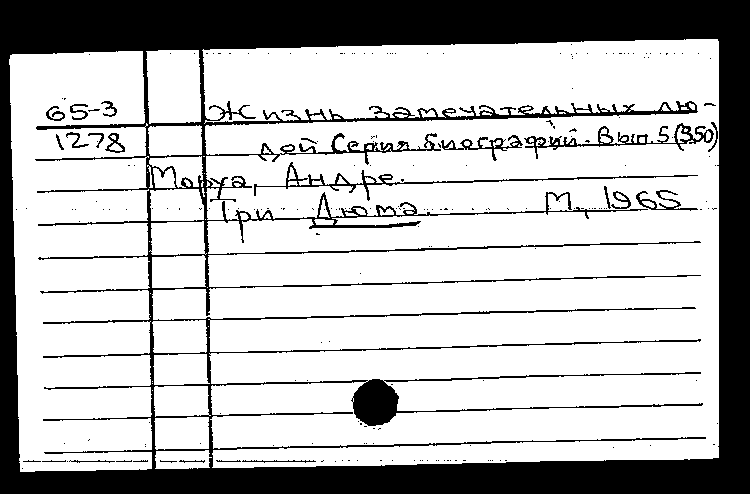 65-3 Жизнь замечательных лю-
1278 дей Серия биографий. Вып. 5 (350)
Моруа, Андре.
Три Дюма. М., 1965